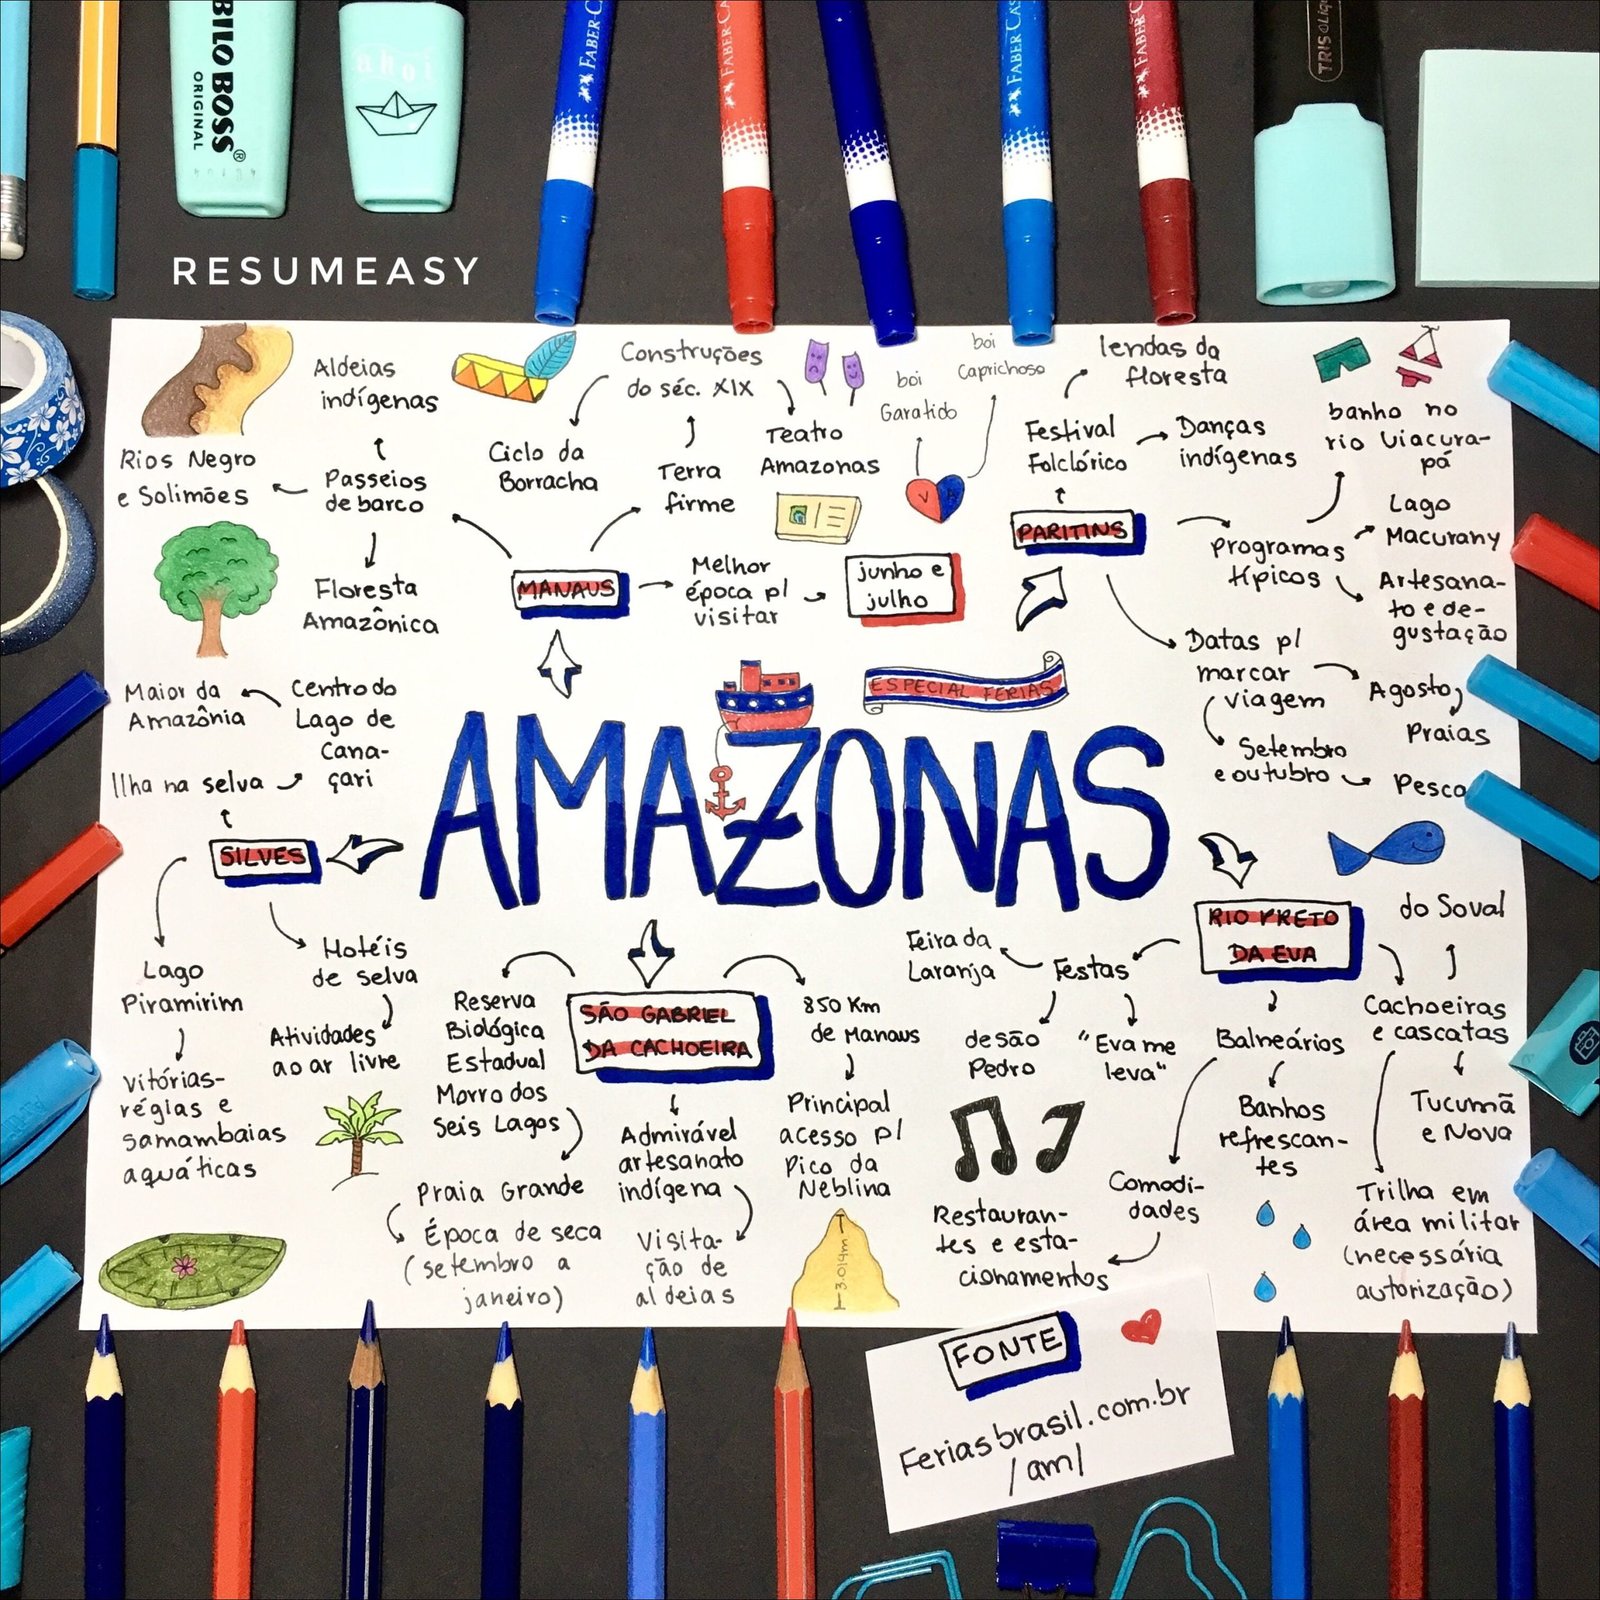 BILO BOSS®
ORIGINAL
ahoi
FABER-CAS
FABER-CA
FABER-CAS
FABER-CA
TRIS
RESUMEASY
Aldeias
indígenas
Rios Negro
e Solimões
Passeios
de barco
Floresta
Amazônica
Construções
do séc. XIX
Ciclo da
Borracha
Teatro
Amazonas
Terra
firme
MANAUS
Melhor
época p/
visitar
junho e
julho
boi
Garatido
boi
Caprichoso
lendas da
floresta
Festival
Folclórico
Danças
indígenas
PARITINS
programas
típicos
banho no
rio Uiacura-
pá
Lago
Macurany
Artesana-
to e de-
gustação
Datas p/
marcar
viagem
Agosto
Praias
Setembro
e outubro
Pesca
ESPECIAL FÉRIAS
AMAZONAS
Maior da
Amazônia
Centro do
Lago de
Cana-
çari
Ilha na selva
SILVES
Lago
Piramirim
vitórias-
régias e
samambaias
aquáticas
Hotéis
de selva
Atividades
ao ar livre
SÃO GABRIEL
DA CACHOEIRA
Reserva
Biológica
Estadual
Morro dos
Seis Lagos
Praia Grande
Época de seca
(setembro a
janeiro)
Admirável
artesanato
indígena
Visita-
ção de
aldeias
850 Km
de Manaus
Principal
acesso p/
Pico da
Neblina
3.014m
RIO PRETO
DA EVA
Festas
Feira da
Laranja
de são
Pedro
"Eva me
leva"
Balneários
Banhos
refrescan-
tes
Comodi-
dades
Restauran-
tes e esta-
cionamentos
Cachoeiras
e cascatas
do Soval
Tucumã
e Nova
Trilha em
área militar
(necessária
autorização)
FONTE
Feriasbrasil.com.br
/am/